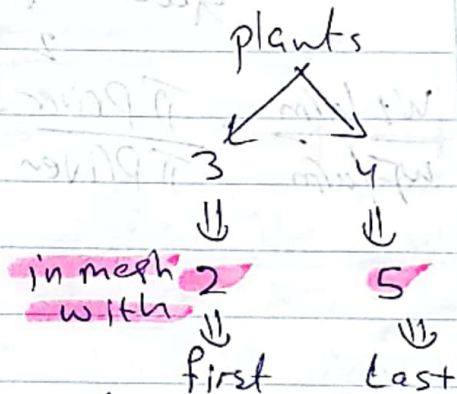 plants
3 4
in mesh 2 5
with
first Last